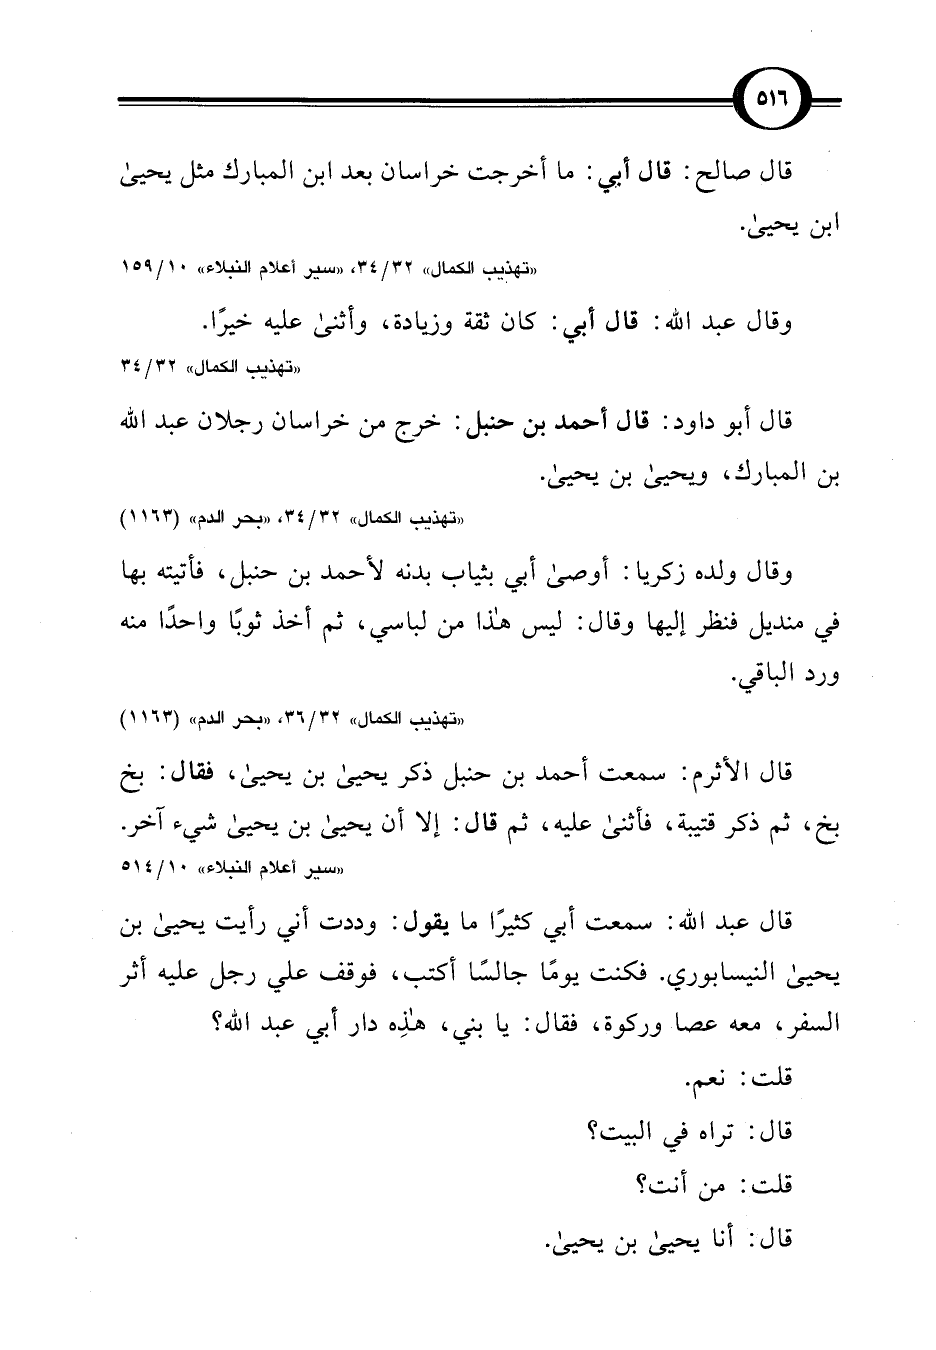 ٥١٦
قال صالح: قال أبي: ما أخرجت خراسان بعد ابن المبارك مثل يحيىٰ
ابن يحيىٰ.
«تهذيب الكمال» ٣٢/ ٣٤، «سير أعلام النبلاء» ١٠/ ١٥٩
وقال عبد الله: قال أبي: كان ثقة وزيادة، وأثنىٰ عليه خيرًا.
«تهذيب الكمال» ٣٢/ ٣٤
قال أبو داود: قال أحمد بن حنبل: خرج من خراسان رجلان عبد الله
بن المبارك، ويحيىٰ بن يحيىٰ.
«تهذيب الكمال» ٣٢/ ٣٤، «بحر الدم» (١١٦٣)
وقال ولده زكريا: أوصىٰ أبي بثياب بدنه لأحمد بن حنبل، فأتيته بها
في منديل فنظر إليها وقال: ليس هٰذا من لباسي، ثم أخذ ثوبًا واحدًا منه
ورد الباقي.
«تهذيب الكمال» ٣٢/ ٣٦، «بحر الدم» (١١٦٣)
قال الأثرم: سمعت أحمد بن حنبل ذكر يحيىٰ بن يحيىٰ، فقال: بخ
بخ، ثم ذكر قتيبة، فأثنىٰ عليه، ثم قال: إلا أن يحيىٰ بن يحيىٰ شيء آخر.
«سير أعلام النبلاء» ١٠/ ٥١٤
قال عبد الله: سمعت أبي كثيرًا ما يقول: وددت أني رأيت يحيىٰ بن
يحيىٰ النيسابوري. فكنت يومًا جالسًا أكتب، فوقف علي رجل عليه أثر
السفر، معه عصا وركوة، فقال: يا بني، هٰذِه دار أبي عبد الله؟
قلت: نعم.
قال: تراه في البيت؟
قلت: من أنت؟
قال: أنا يحيىٰ بن يحيىٰ.